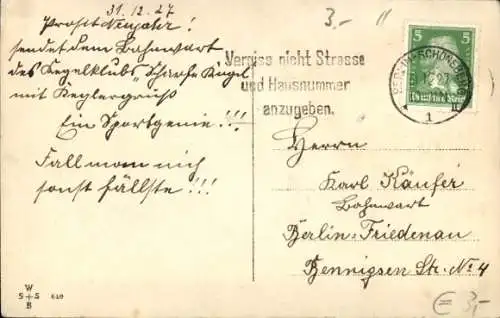 31.12.27
Prosit Neujahr!
sendet dem Bahnwart
des Kegelklubs "Scharfe Kugel"
mit Keglergruß
Ein Sportgenie!!!
Fall man nich
sonst fällste!!!
3,- 11
Vergiss nicht Strasse
und Hausnummer
anzugeben.
BERLIN-SCHÖNEBERG
12.27
1
5 5
Deutsches Reich
Herrn
Karl Käufer
Bahnwart
Berlin-Friedenau
Bennigsen Str. No 4
W
S + S 610
B
€ 3,-